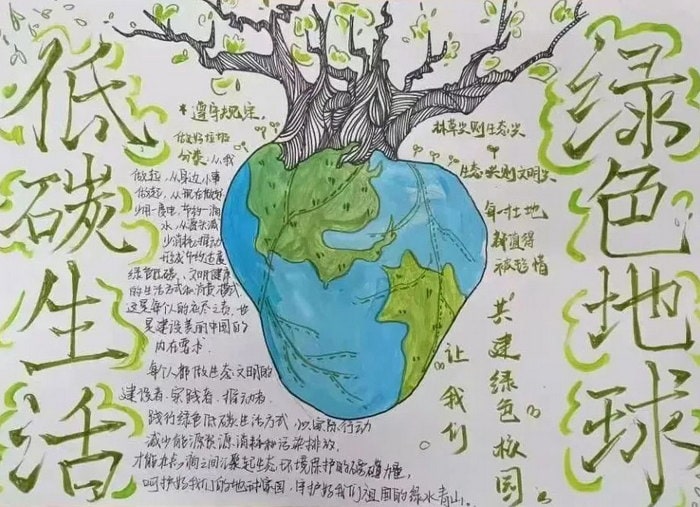 低碳生活
绿色地球
*遵守规定。
做好垃圾
分类,从我
做起,从身边小事
做起,从现在做起
少用一度电,节约一滴
水,从源头减
少消耗,推动
形成节约适度
绿色低碳、文明健康
的生活方式和消费模式
这是每个人的生态之责,也
是建设美丽中国的
内在要求.
每个人都做生态文明的
建设者、实践者、推动者.
践行绿色低碳生活方式,以实际行动
减少能源资源消耗和污染排放.
才能在点滴之间汇聚起生态环境保护的磅礴力量,
呵护好我们的地球家园,守护好我们祖国的绿水青山。
林草兴则生态兴
生态兴则文明兴
每一寸土地
都值得
被珍惜
“让我们
共建绿色校园”